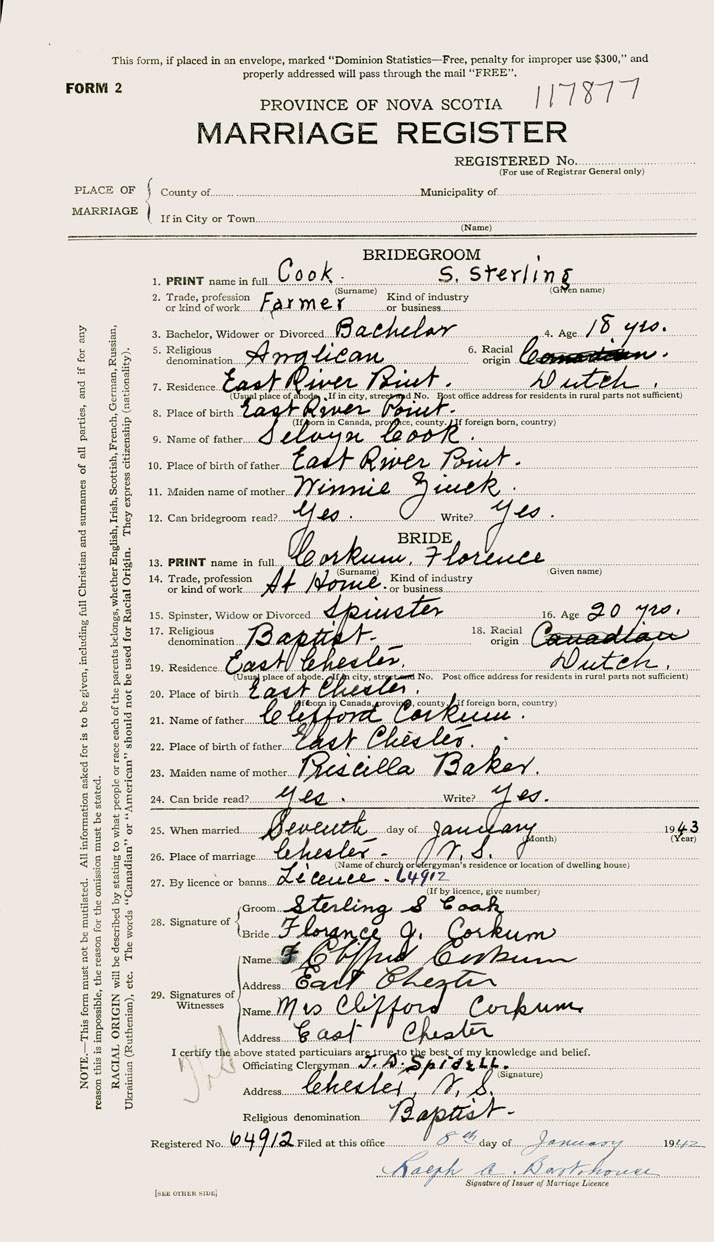 This form, if placed in an envelope, marked "Dominion Statistics—Free, penalty for improper use $300," and
properly addressed will pass through the mail "FREE".
FORM 2
117877
PROVINCE OF NOVA SCOTIA
MARRIAGE REGISTER
REGISTERED No.
(For use of Registrar General only)
PLACE OF MARRIAGE
County of Municipality of
If in City or Town
(Name)
BRIDEGROOM
1. PRINT name in full Cook. S. Sterling
(Surname) (Given name)
2. Trade, profession or kind of work Farmer Kind of industry or business
3. Bachelor, Widower or Divorced Bachelor 4. Age 18 yrs.
5. Religious denomination Anglican 6. Racial origin Canadian.
Dutch.
7. Residence East River Point.
(Usual place of abode. If in city, street and No. Post office address for residents in rural parts not sufficient)
8. Place of birth East River Point.
(If born in Canada, province, county. If foreign born, country)
9. Name of father Selvyn Cook.
10. Place of birth of father East River Point.
11. Maiden name of mother Winnie Zinck.
12. Can bridegroom read? Yes. Write? Yes.
BRIDE
13. PRINT name in full Corkum, Florence
(Surname) (Given name)
14. Trade, profession or kind of work At Home. Kind of industry or business
15. Spinster, Widow or Divorced Spinster 16. Age 20 yrs.
17. Religious denomination Baptist. 18. Racial origin Canadian
Dutch.
19. Residence East Chester.
(Usual place of abode. If in city, street and No. Post office address for residents in rural parts not sufficient)
20. Place of birth East Chester.
(If born in Canada, province, county. If foreign born, country)
21. Name of father Clifford Corkum.
22. Place of birth of father East Chester.
23. Maiden name of mother Priscilla Baker.
24. Can bride read? Yes. Write? Yes.
25. When married Seventh day of January 1943
(Month) (Year)
26. Place of marriage Chester - N.S.
(Name of church or clergyman's residence or location of dwelling house)
27. By licence or banns Licence - 64912
(If by licence, give number)
28. Signature of
Groom Sterling S Cook
Bride Florance J. Corkum
29. Signatures of Witnesses
Name Clifford Corkum
Address East Chester
Name Mrs Clifford Corkum
Address East Chester
I certify the above stated particulars are true to the best of my knowledge and belief.
Officiating Clergyman Spidell.
(Signature)
Address Chester, N.S.
Religious denomination Baptist.
Registered No. 64912 Filed at this office 8th day of January 1942
Ralph A. Barkhouse
Signature of Issuer of Marriage Licence
[SEE OTHER SIDE]
NOTE.—This form must not be mutilated. All information asked for is to be given, including full Christian and surnames of all parties, and if for any
reason this is impossible, the reason for the omission must be stated.
RACIAL ORIGIN will be described by stating to what people or race each of the parents belongs, whether English, Irish, Scottish, French, German, Russian,
Ukrainian (Ruthenian), etc. The words "Canadian" or "American" should not be used for Racial Origin. They express citizenship (nationality).